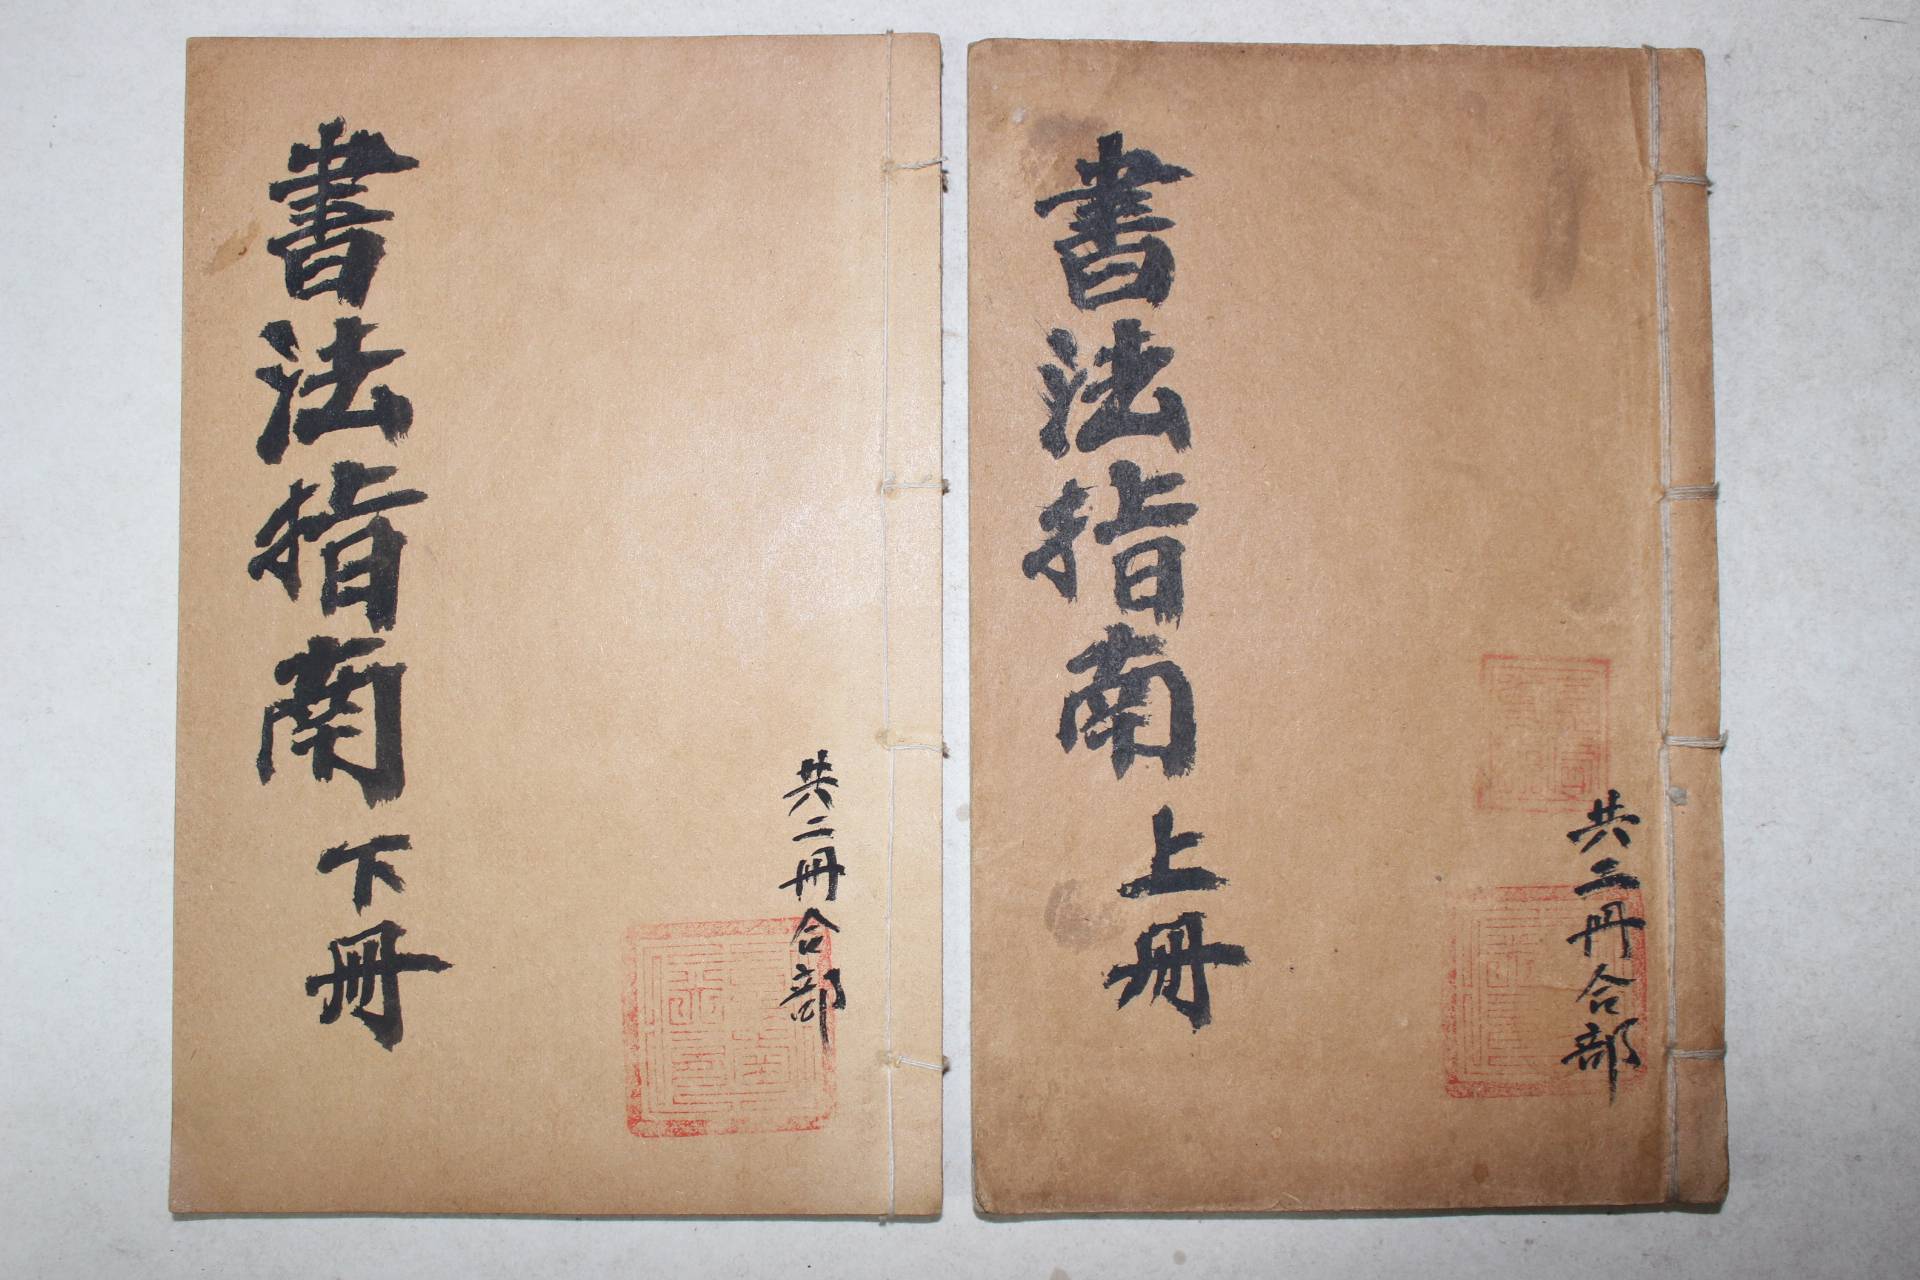 書法指南 上冊
共二冊合部
書法指南 下冊
共二冊合部